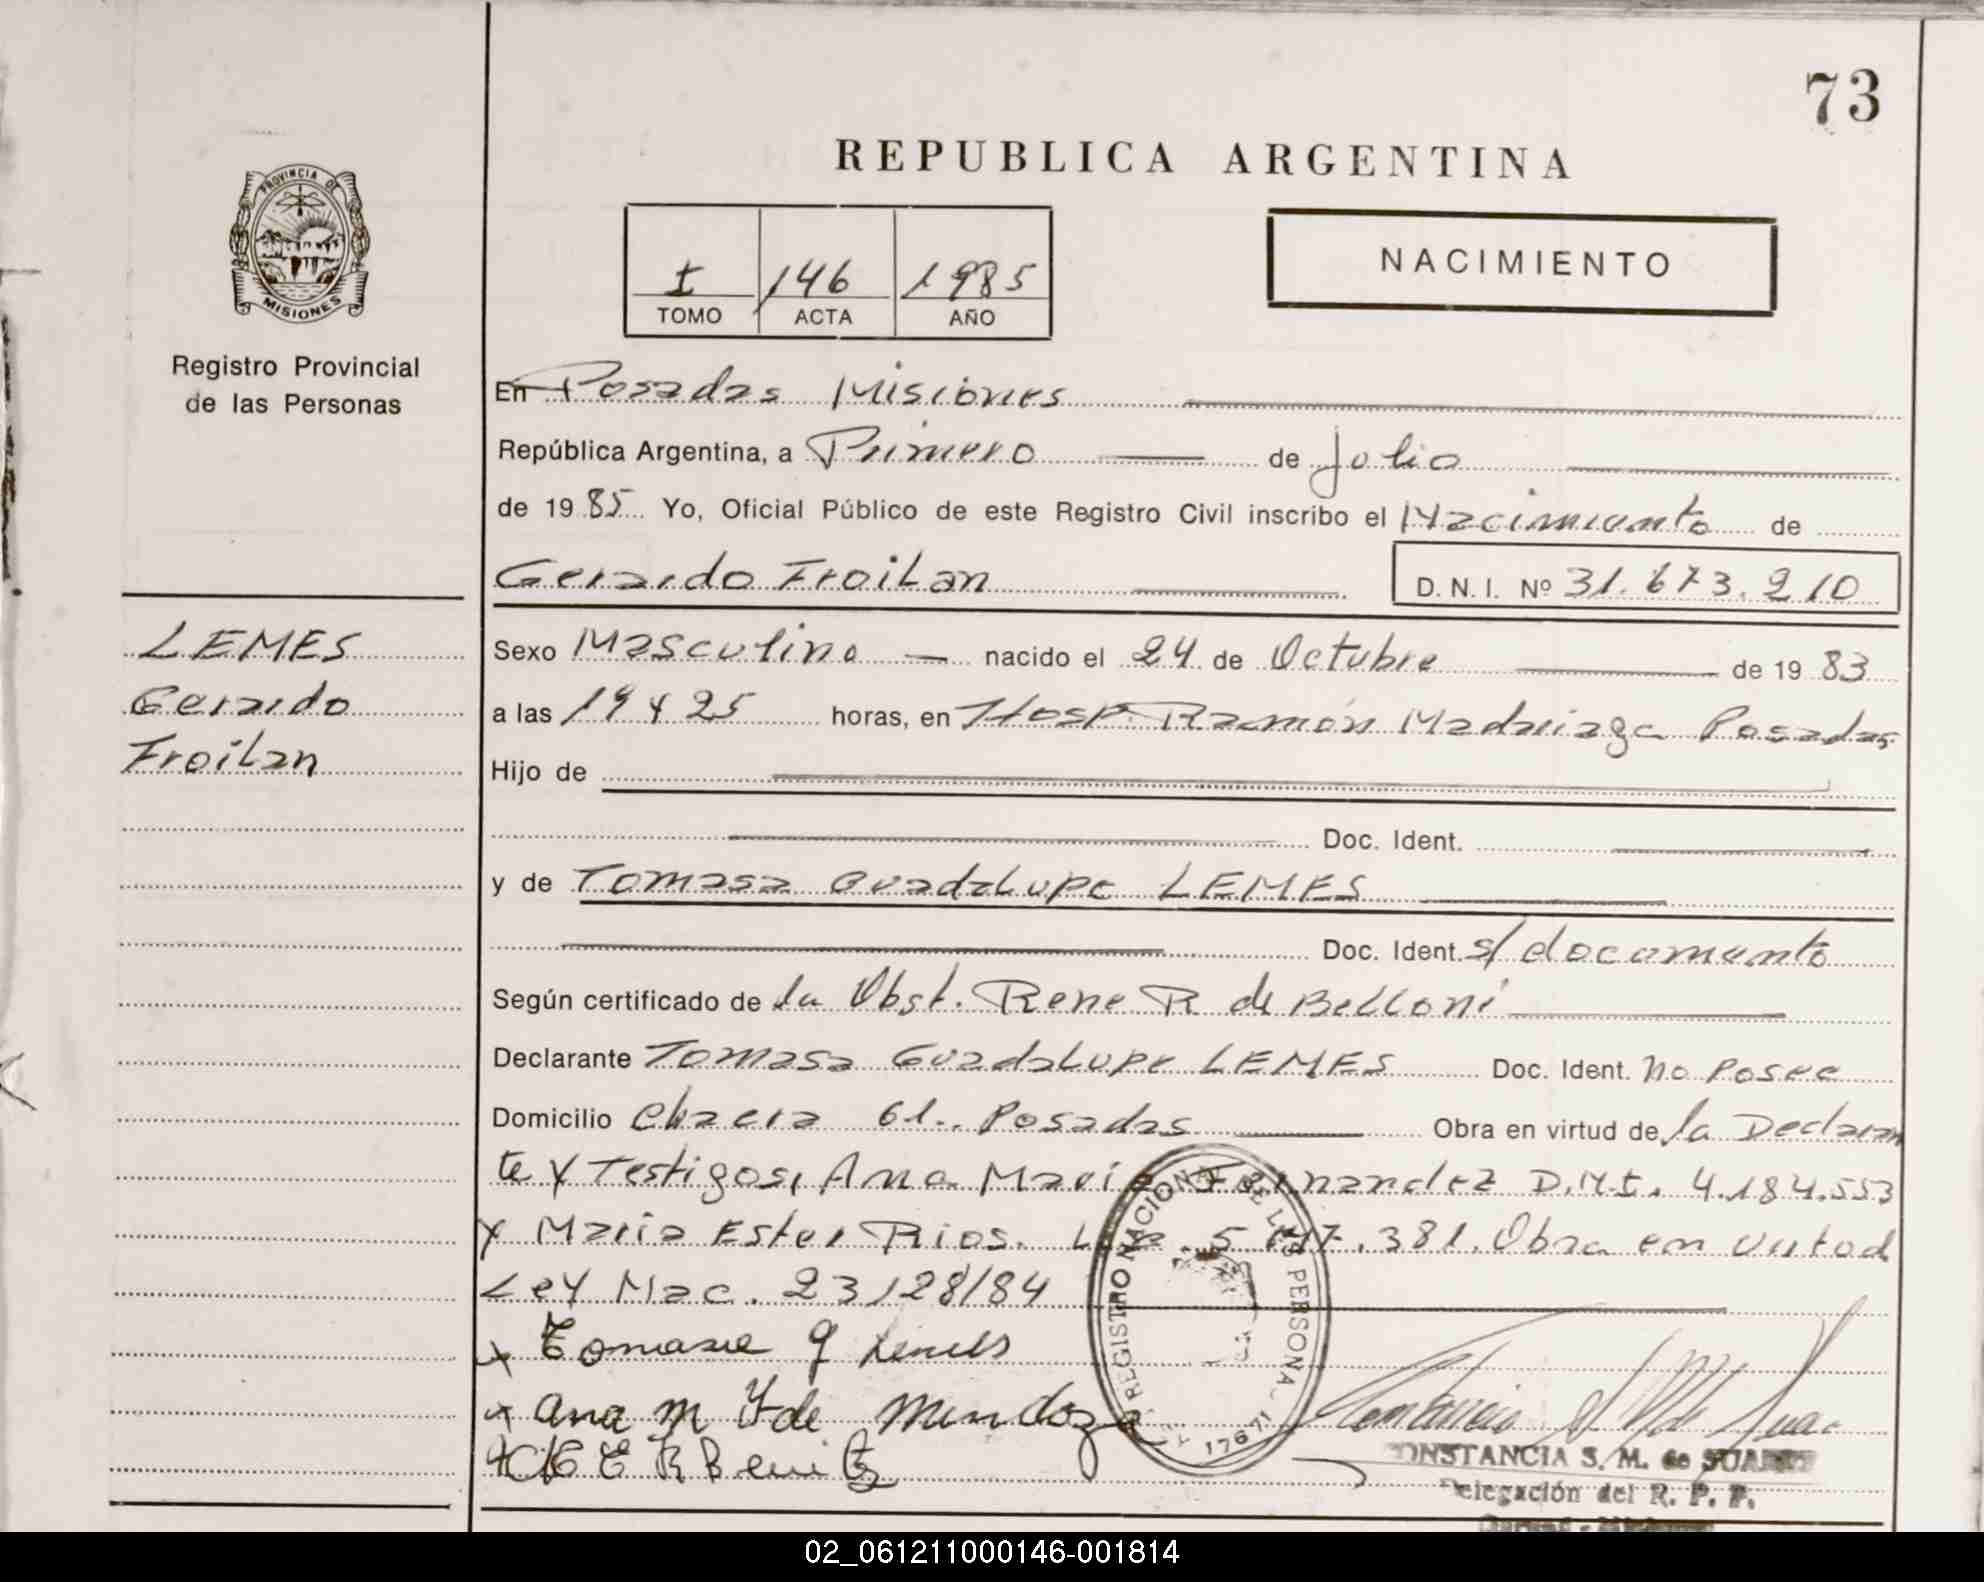 73
REPUBLICA ARGENTINA
PROVINCIA DE
MISIONES
Registro Provincial
de las Personas
I 146 1985
TOMO ACTA AÑO
NACIMIENTO
En Posadas Misiones
República Argentina, a Primero de Julio
de 19 85 Yo, Oficial Público de este Registro Civil inscribo el Nacimiento de
Gerardo Froilan D.N.I. Nº 31.673.210
LEMES
Gerardo
Froilan
Sexo Masculino nacido el 24 de Octubre de 19 83
a las 19 y 25 horas, en Hosp. Ramón Madariaga Posadas
Hijo de
Doc. Ident.
y de Tomasa Guadalupe LEMES
Doc. Ident. s/ documento
Según certificado de la Obst. Rene R de Belloni
Declarante Tomasa Guadalupe LEMES Doc. Ident. no posee
Domicilio Chacra 61.. Posadas Obra en virtud de la Declaran
te y Testigos, Ana Maria Fernandez D.N.I. 4.184.553
y Maria Ester Rios. 381. Obra en virtud
Ley Nac. 23128/84
x Tomasa g Lemes
x Ana m F de Mendoza
REGISTRO NACIONAL DE LAS PERSONAS
17671
CONSTANCIA S. M. de SUAREZ
Delegación del R. P. P.
02_061211000146-001814